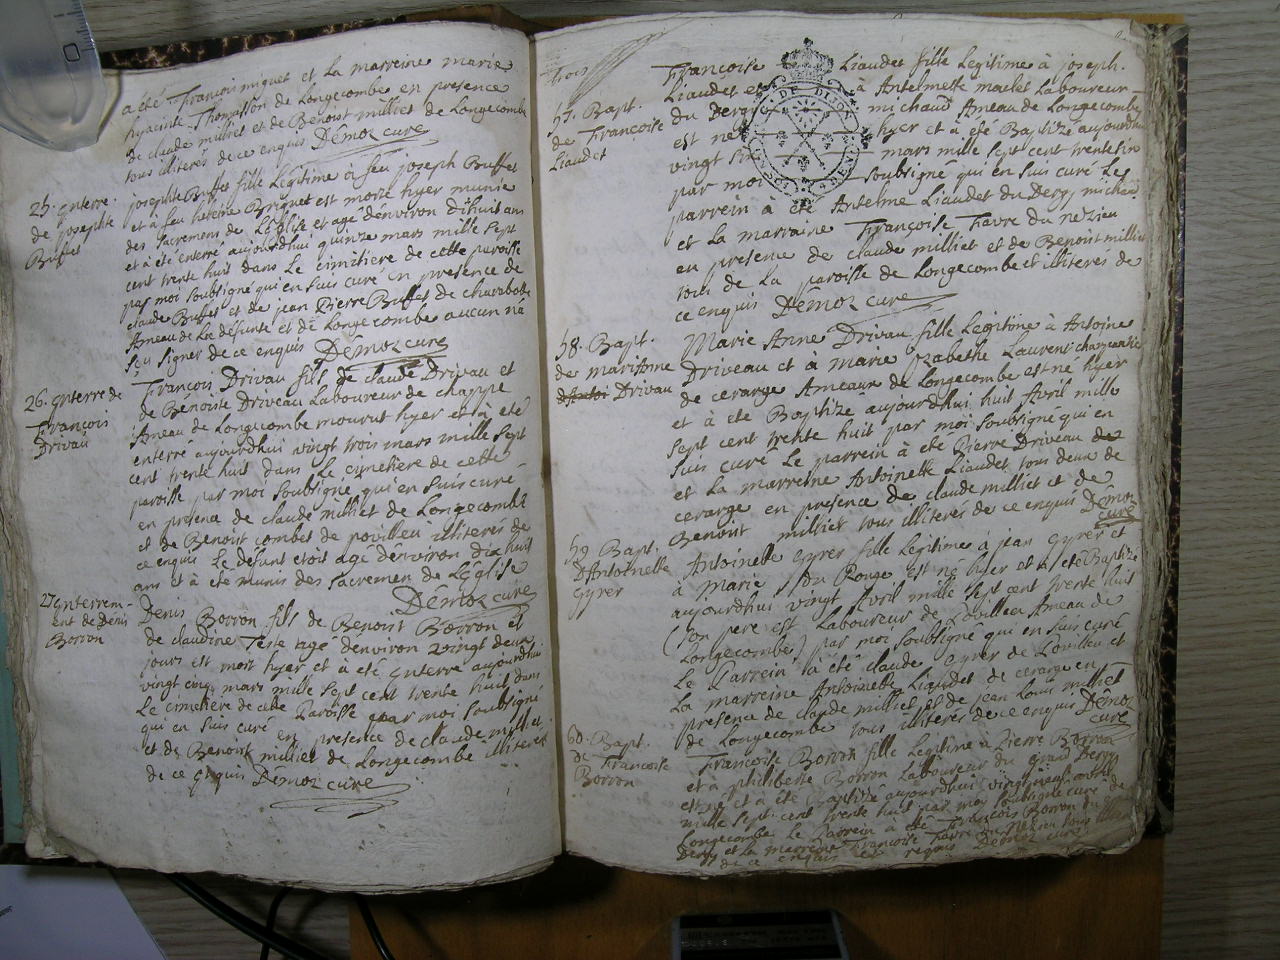 a été François miguet et La marreine marie
hyacinte Thomasson de Longecombe en presence
de claude milliet et de Benoist milliet de Longecombe
tous illiteres de ce enquis Démoz curé
25. Enterre. josephte Buffet fille Legitime à feu joseph Buffet
de josephte et à feu Briguet est morte hyer munie
Buffet des sacremens de L'Eglise et agé denviron dihuit ans
et à été enterré aujourdhui quinze mars mille sept
cent trente huit dans Le cimitiere de cette paroisse
par moi soubsigné qui en suis curé en presence de
claude Buffet et de jean Pierre Buffet de charabote
Ameau de La defunte et de Longecombe aucun n'a
sçu signer de ce enquis Démoz curé
26. Enterre de François Drivau fils de claude Drivau et
François de Bénoite Driveau Laboureur de chappe
Drivau Ameau de Longecombe mourut hyer et à été
enterré aujourdhui vingt trois mars mille sept
cent trente huit dans Le cymetiere de cette
paroisse par moi soubsigné qui en suis curé
en presence de claude milliet de Longecombe
et de Benoit combet de povilleu illiteres de
ce enquis Le défunt etoit agé denviron dix huit
ans et à eté munis des sacremen de L'Eglise
Démoz curé
27 Enterrem- Denis Borron fils de Benoist Borron et
ent de Denis de claudine Teste agé dénviron vingt deux
Borron jours est mort hyer et à été Enterré aujourdhui
vingt cinq mars mille sept cent trente huit dans
Le cimetiere de cette Paroisse par moi soubsigné
qui en suis curé en presence de claude milliet
et de Benoist milliet de Longecombe illiteres
de ce enquis Démoz curé
trois
57. Bapt. Françoise Liaudet fille Legitime à joseph
de Françoise Liaudet et à Antelmette maclet Laboureur
Liaudet du Dergy michaud Ameau de Longecombe
est né hyer et à été Baptizé aujourdhui
vingt six mars mille sept cent trente huit
par moi soubsigné qui en suis curé Le
parrein à été Antelme Liaudet du Dergy michau
et La marraine Françoise Favre du nezieu
en presence de claude milliet et de Benoist milliet
tous de La paroisse de Longecombe et illiteres de
ce enquis Démoz curé
58. Bapt. Marie Anne Drivau fille Legitime à Antoine
de marianne Driveau et à marie Izabethe Laurent
Drivau de cerarge Ameaux de Longecombe est né hyer
et à été Baptizé aujourdhui huit Avril mille
sept cent trente huit par moi soubsigné qui en
suis curé Le parrein à été Pierre Driveau de
et La marreine Antoinette Liaudet tous deux de
cerarge en presence de claude milliet et de
Benoist milliet tous illiteres de ce enquis Démoz
curé
59 Bapt. Antoinette Gyrer fille Legitime à jean Gyrer et
d'Antoinette à Marie du Rouge est né hyer et à eté Baptizé
Gyrer aujourdhui vingt Avril mille sept cent trente huit
(son pere est Laboureur de Ameau de
Longecombe) par moi soubsigné qui en suis curé
Le Parrein à été claude Gyrer de et
La marreine Antoinette Liaudet de cerarge en
presence de claude milliet et de jean Louis milliet
de Longecombe tous illiteres de ce enquis Démoz
curé
60. Bapt. Françoise Borron fille Legitime à Pierre Borron
de Françoise et à philiberte Borron Laboureur du grand Dergy
Borron est né et à été Baptizé aujourdhui vingt neuf avril
mille sept cent trente huit par moy soubsigné curé de
Longecombe Le Parrein à été François Borron du
Dergy et La marreine Françoise Favre du Nezieu tous
de ce enquis et requis Démoz curé